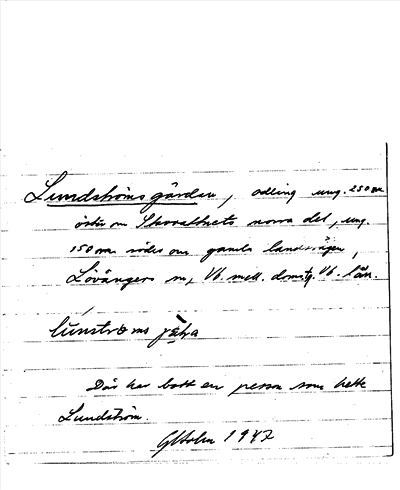 Lundströmsgården, odling ung. 250 m
öster om norra del, ung.
150 m söder om gamla landsvägen,
Lövångers sn, Vb. mell. doms. Vb. län.
lúnstrøms
Där har bott en person som hette
Lundström.
GHolm 1947